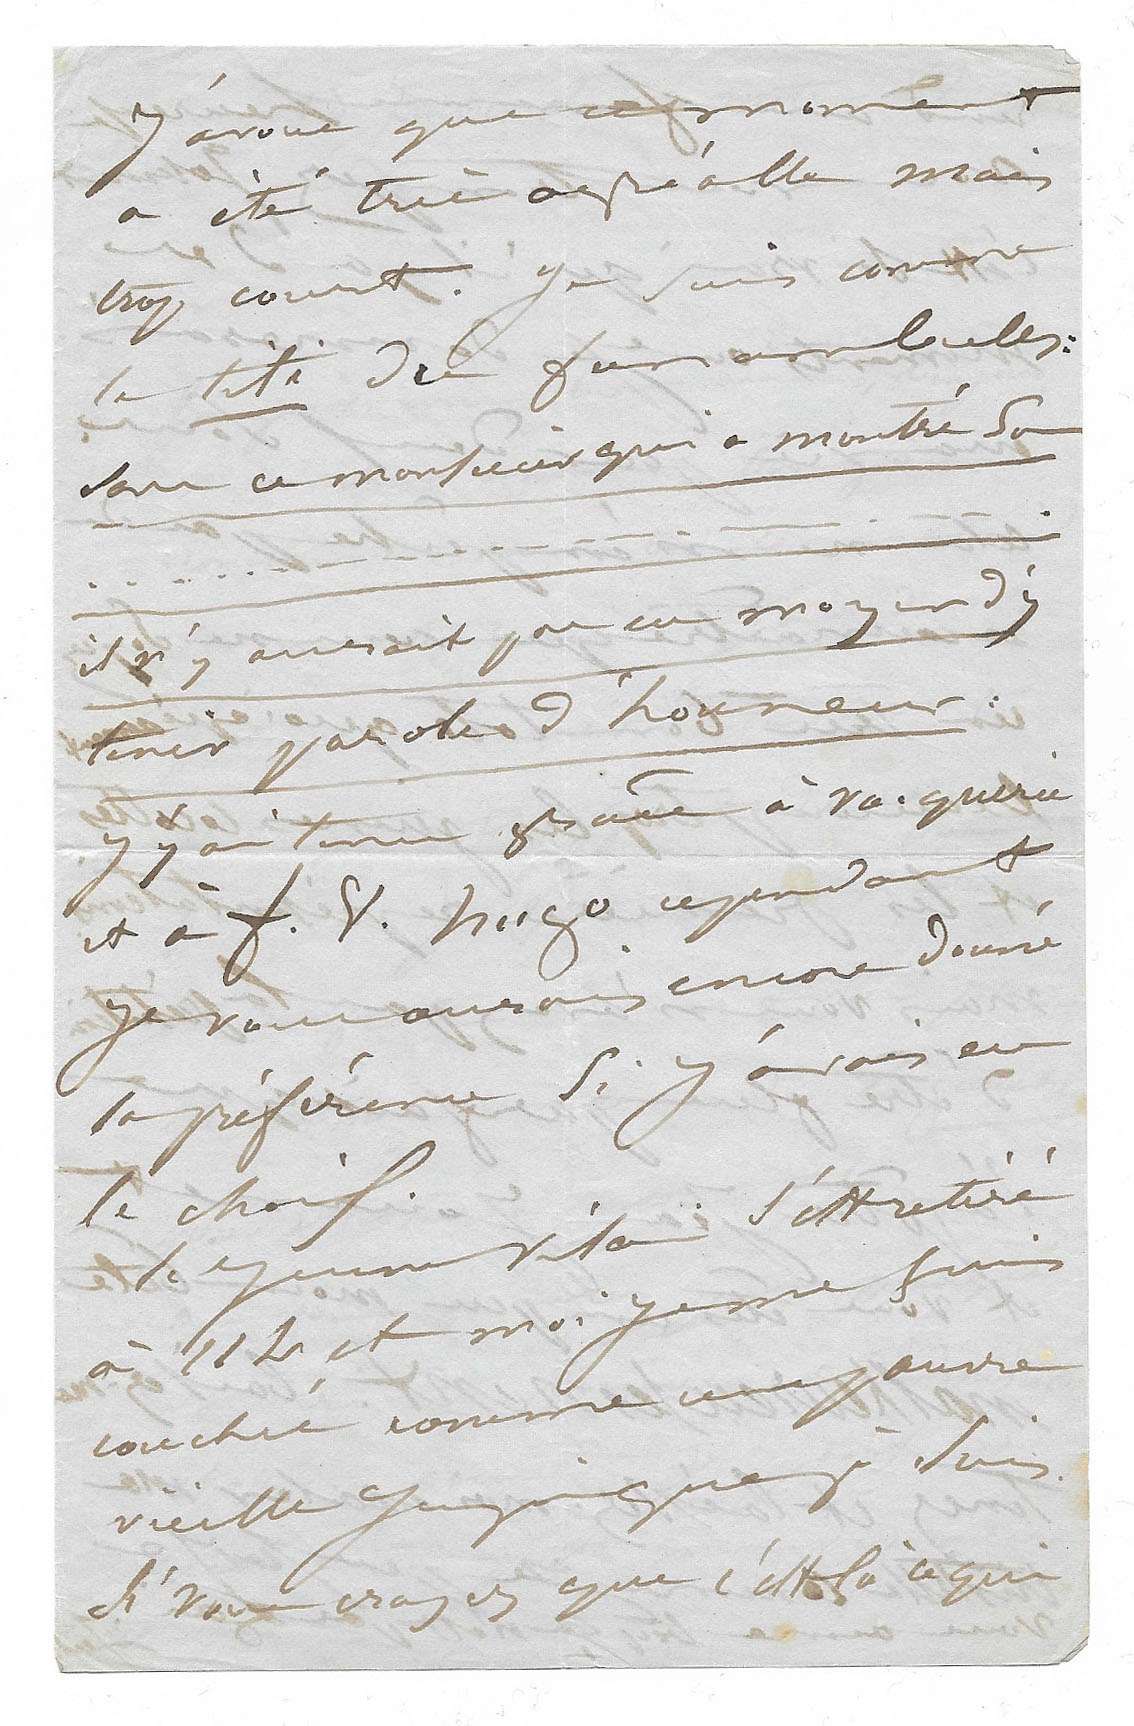 j'avoue que ce moment
a été très agréable mais
trop court. Je suis comme
le titi des funambules:
sans ce monsieur qui a montré son
. . . . . . . . . . . . . . .
il n'y aurait pas eu moyen d'y
tenir parole d'honneur:
j'y ai tenu grâce à Vacquerie
et à f. V. hugo cependant
je vous aurais encore donné
la préférence si j'avais eu
le choix.
le jeune Vilain s'est retiré
à 11 h et moi je me suis
couchée comme une pauvre
vieille que je suis.
si vous croyez que c'est là ce qui